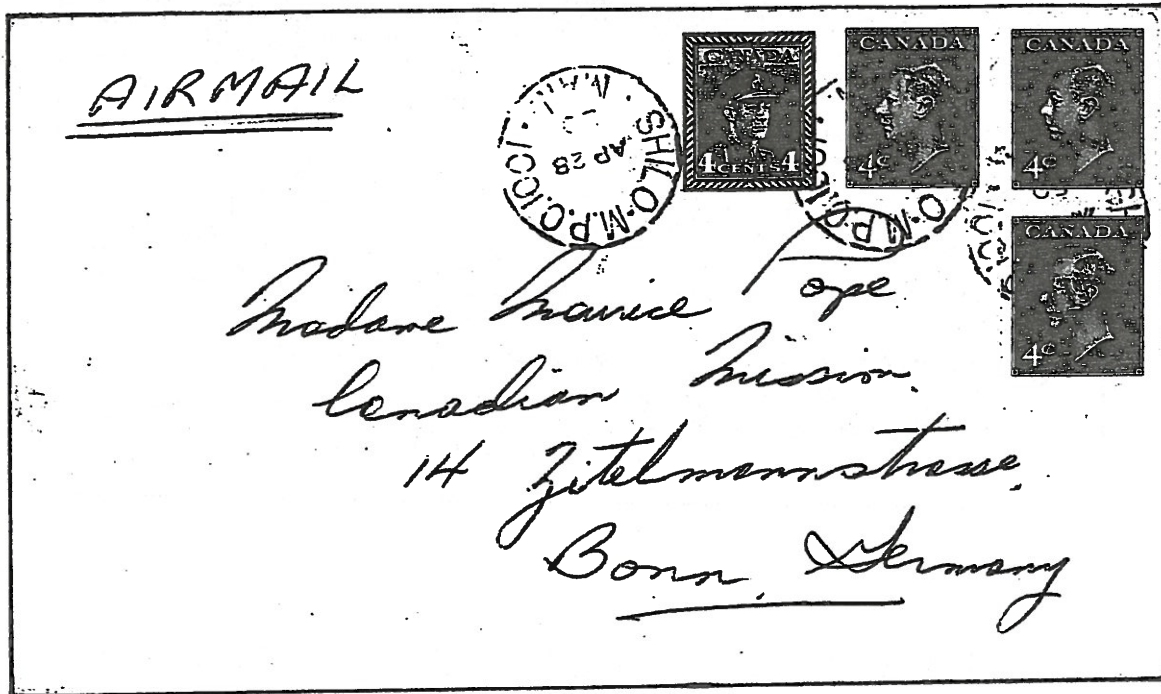 AIRMAIL
SHILO·M.P.O.1001·MAN.
AP 28
CANADA
4 CENTS 4
CANADA
4¢
CANADA
4¢
CANADA
4¢
O·M.P.O.
Madame Maurice Pope
Canadian Mission,
14 Zitelmannstrasse,
Bonn, Germany